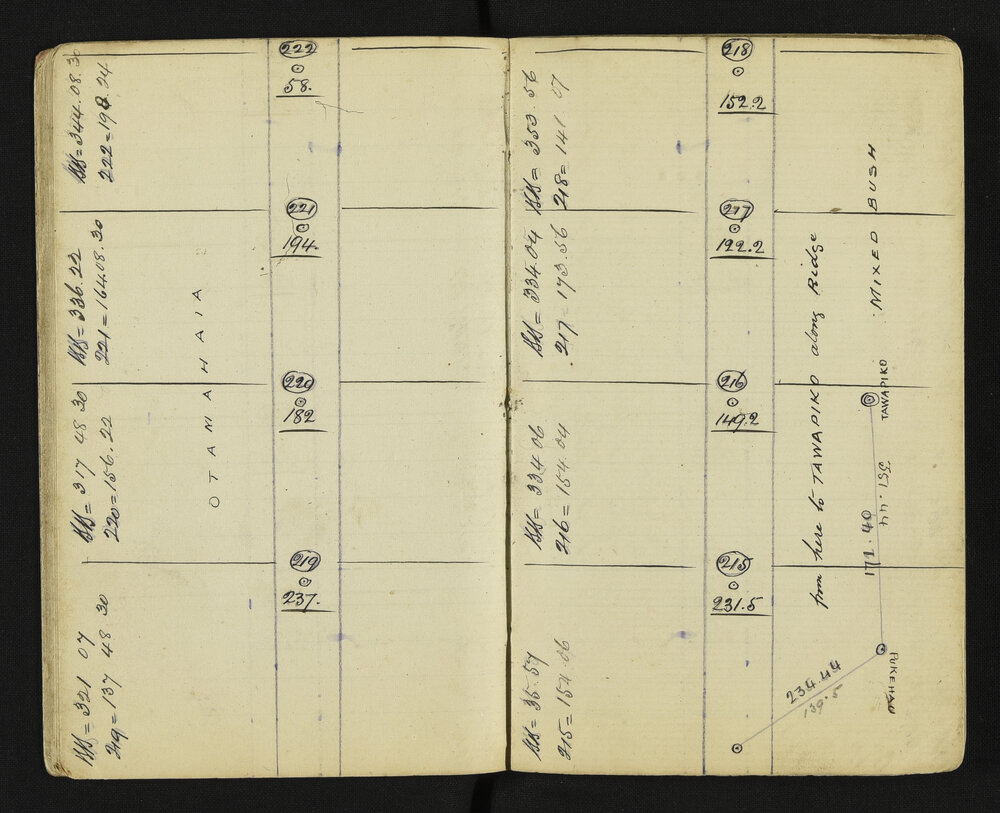 222
58.
BS = 344.08.30
222 = 198.24
221
194.
BS = 336.22
221 = 164.08.30
OTAMAHAIA
220
182
BS = 317 48 30
220 = 156.22
219
237.
BS = 321 07
219 = 137 48 30
218
152.2
BS = 353.56
218 = 141 07
217
122.2
BS = 334.04
217 = 173.56
MIXED BUSH
216
149.2
BS = 334 06
216 = 154.04
from here to TAWAPIKO along Ridge
TAWAPIKO
351.44
171.40
215
231.5
BS = 35.57
215 = 154.06
234.44
139.5